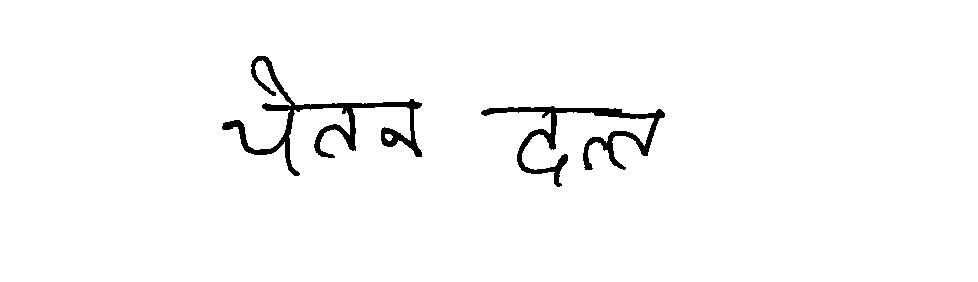 चैतन दत्त